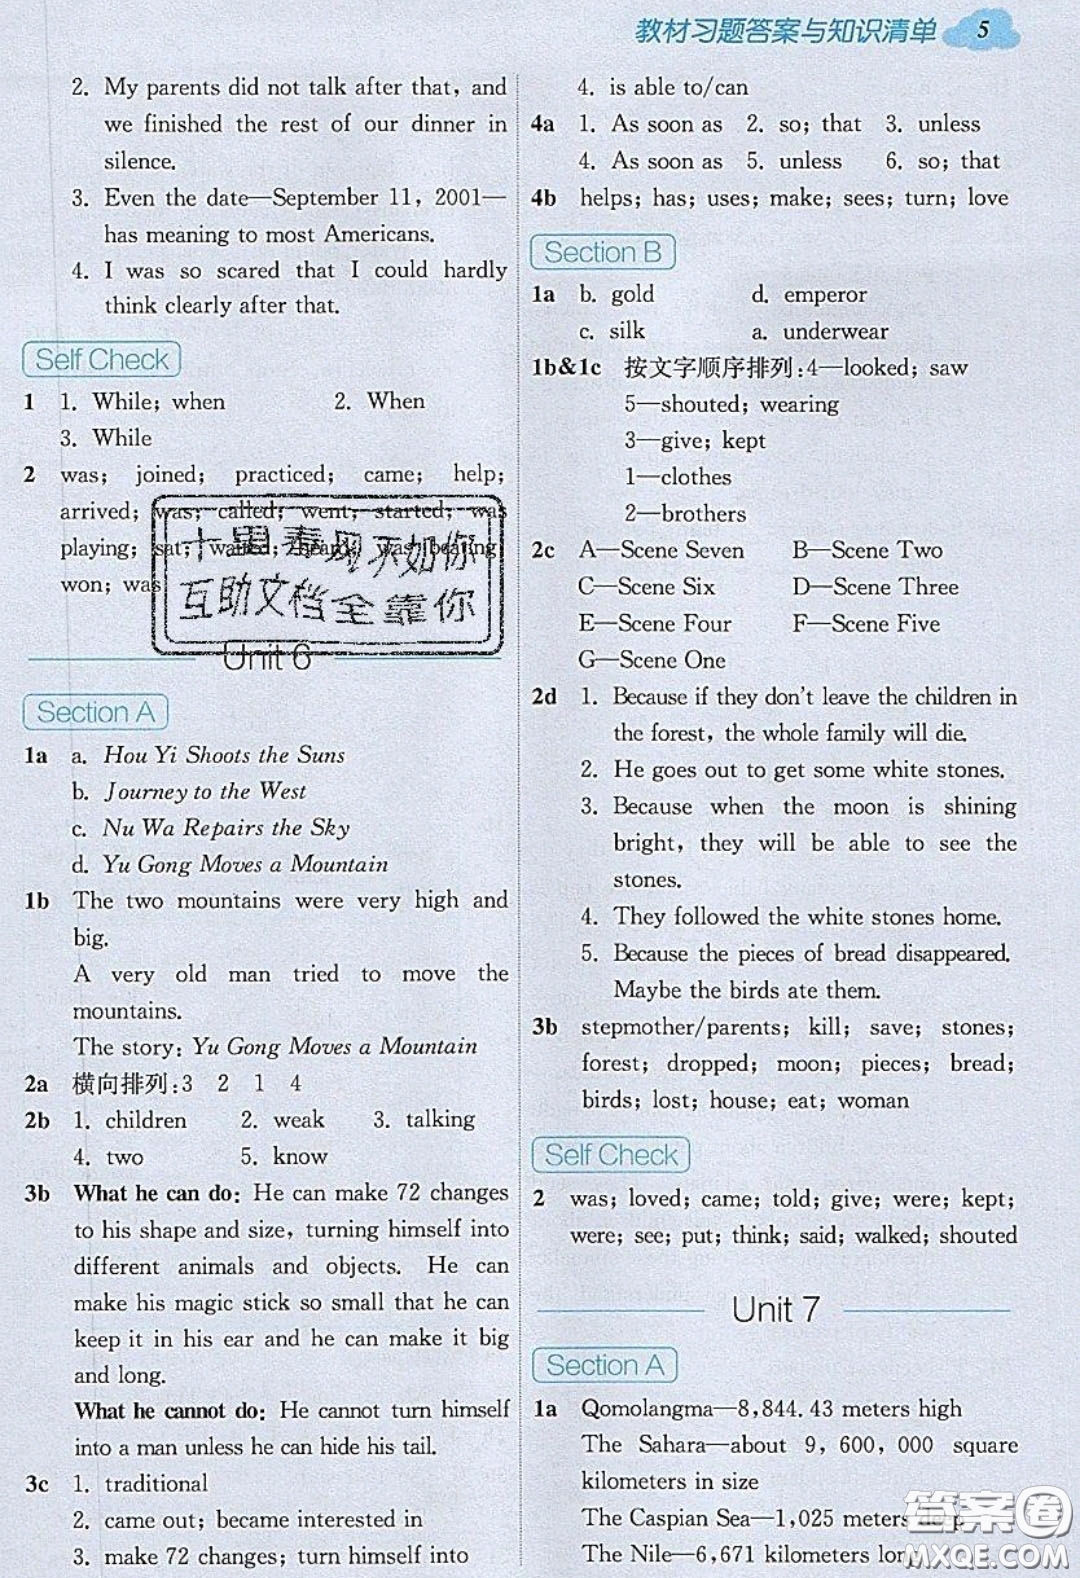 教材习题答案与知识清单 5
2. My parents did not talk after that, and
we finished the rest of our dinner in
silence.
3. Even the date—September 11, 2001—
has meaning to most Americans.
4. I was so scared that I could hardly
think clearly after that.
Self Check
1 1. While; when 2. When
3. While
2 was; joined; practiced; came; help;
arrived; was; called; went; started; was
playing; sat; waited; heard; was beating;
won; was
十里春风不如你
互助文档全靠你
Unit 6
Section A
1a a. Hou Yi Shoots the Suns
b. Journey to the West
c. Nu Wa Repairs the Sky
d. Yu Gong Moves a Mountain
1b The two mountains were very high and
big.
A very old man tried to move the
mountains.
The story: Yu Gong Moves a Mountain
2a 横向排列:3 2 1 4
2b 1. children 2. weak 3. talking
4. two 5. know
3b What he can do: He can make 72 changes
to his shape and size, turning himself into
different animals and objects. He can
make his magic stick so small that he can
keep it in his ear and he can make it big
and long.
What he cannot do: He cannot turn himself
into a man unless he can hide his tail.
3c 1. traditional
2. came out; became interested in
3. make 72 changes; turn himself into
4. is able to/can
4a 1. As soon as 2. so; that 3. unless
4. As soon as 5. unless 6. so; that
4b helps; has; uses; make; sees; turn; love
Section B
1a b. gold d. emperor
c. silk a. underwear
1b&1c 按文字顺序排列:4—looked; saw
5—shouted; wearing
3—give; kept
1—clothes
2—brothers
2c A—Scene Seven B—Scene Two
C—Scene Six D—Scene Three
E—Scene Four F—Scene Five
G—Scene One
2d 1. Because if they don't leave the children in
the forest, the whole family will die.
2. He goes out to get some white stones.
3. Because when the moon is shining
bright, they will be able to see the
stones.
4. They followed the white stones home.
5. Because the pieces of bread disappeared.
Maybe the birds ate them.
3b stepmother/parents; kill; save; stones;
forest; dropped; moon; pieces; bread;
birds; lost; house; eat; woman
Self Check
2 was; loved; came; told; give; were; kept;
were; see; put; think; said; walked; shouted
Unit 7
Section A
1a Qomolangma—8,844.43 meters high
The Sahara—about 9, 600, 000 square
kilometers in size
The Caspian Sea—1,025 meters deep
The Nile—6,671 kilometers long
答案圈
MXQE.COM